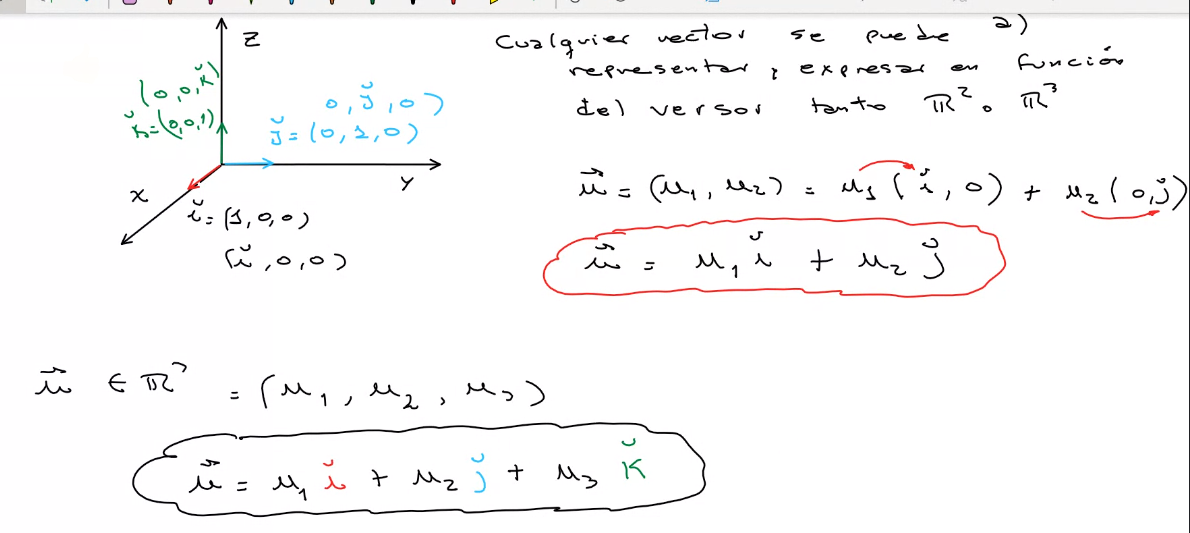 Z
(0,0,ǩ)
ǩ=(0,0,1)
0,ǰ,0)
ǰ=(0,1,0)
Y
X
ĭ=(1,0,0)
(ĭ,0,0)
Cualquier vector se puede a)
representar y expresar en función
del versor tanto ℝ² o ℝ³
u⃗ = (u₁, u₂) = u₁(ĭ, 0) + u₂(0,j̆)
u⃗ = u₁ ĭ + u₂ j̆
u⃗ ∈ ℝ³ = (u₁, u₂, u₃)
u⃗ = u₁ ĭ + u₂ j̆ + u₃ k̆